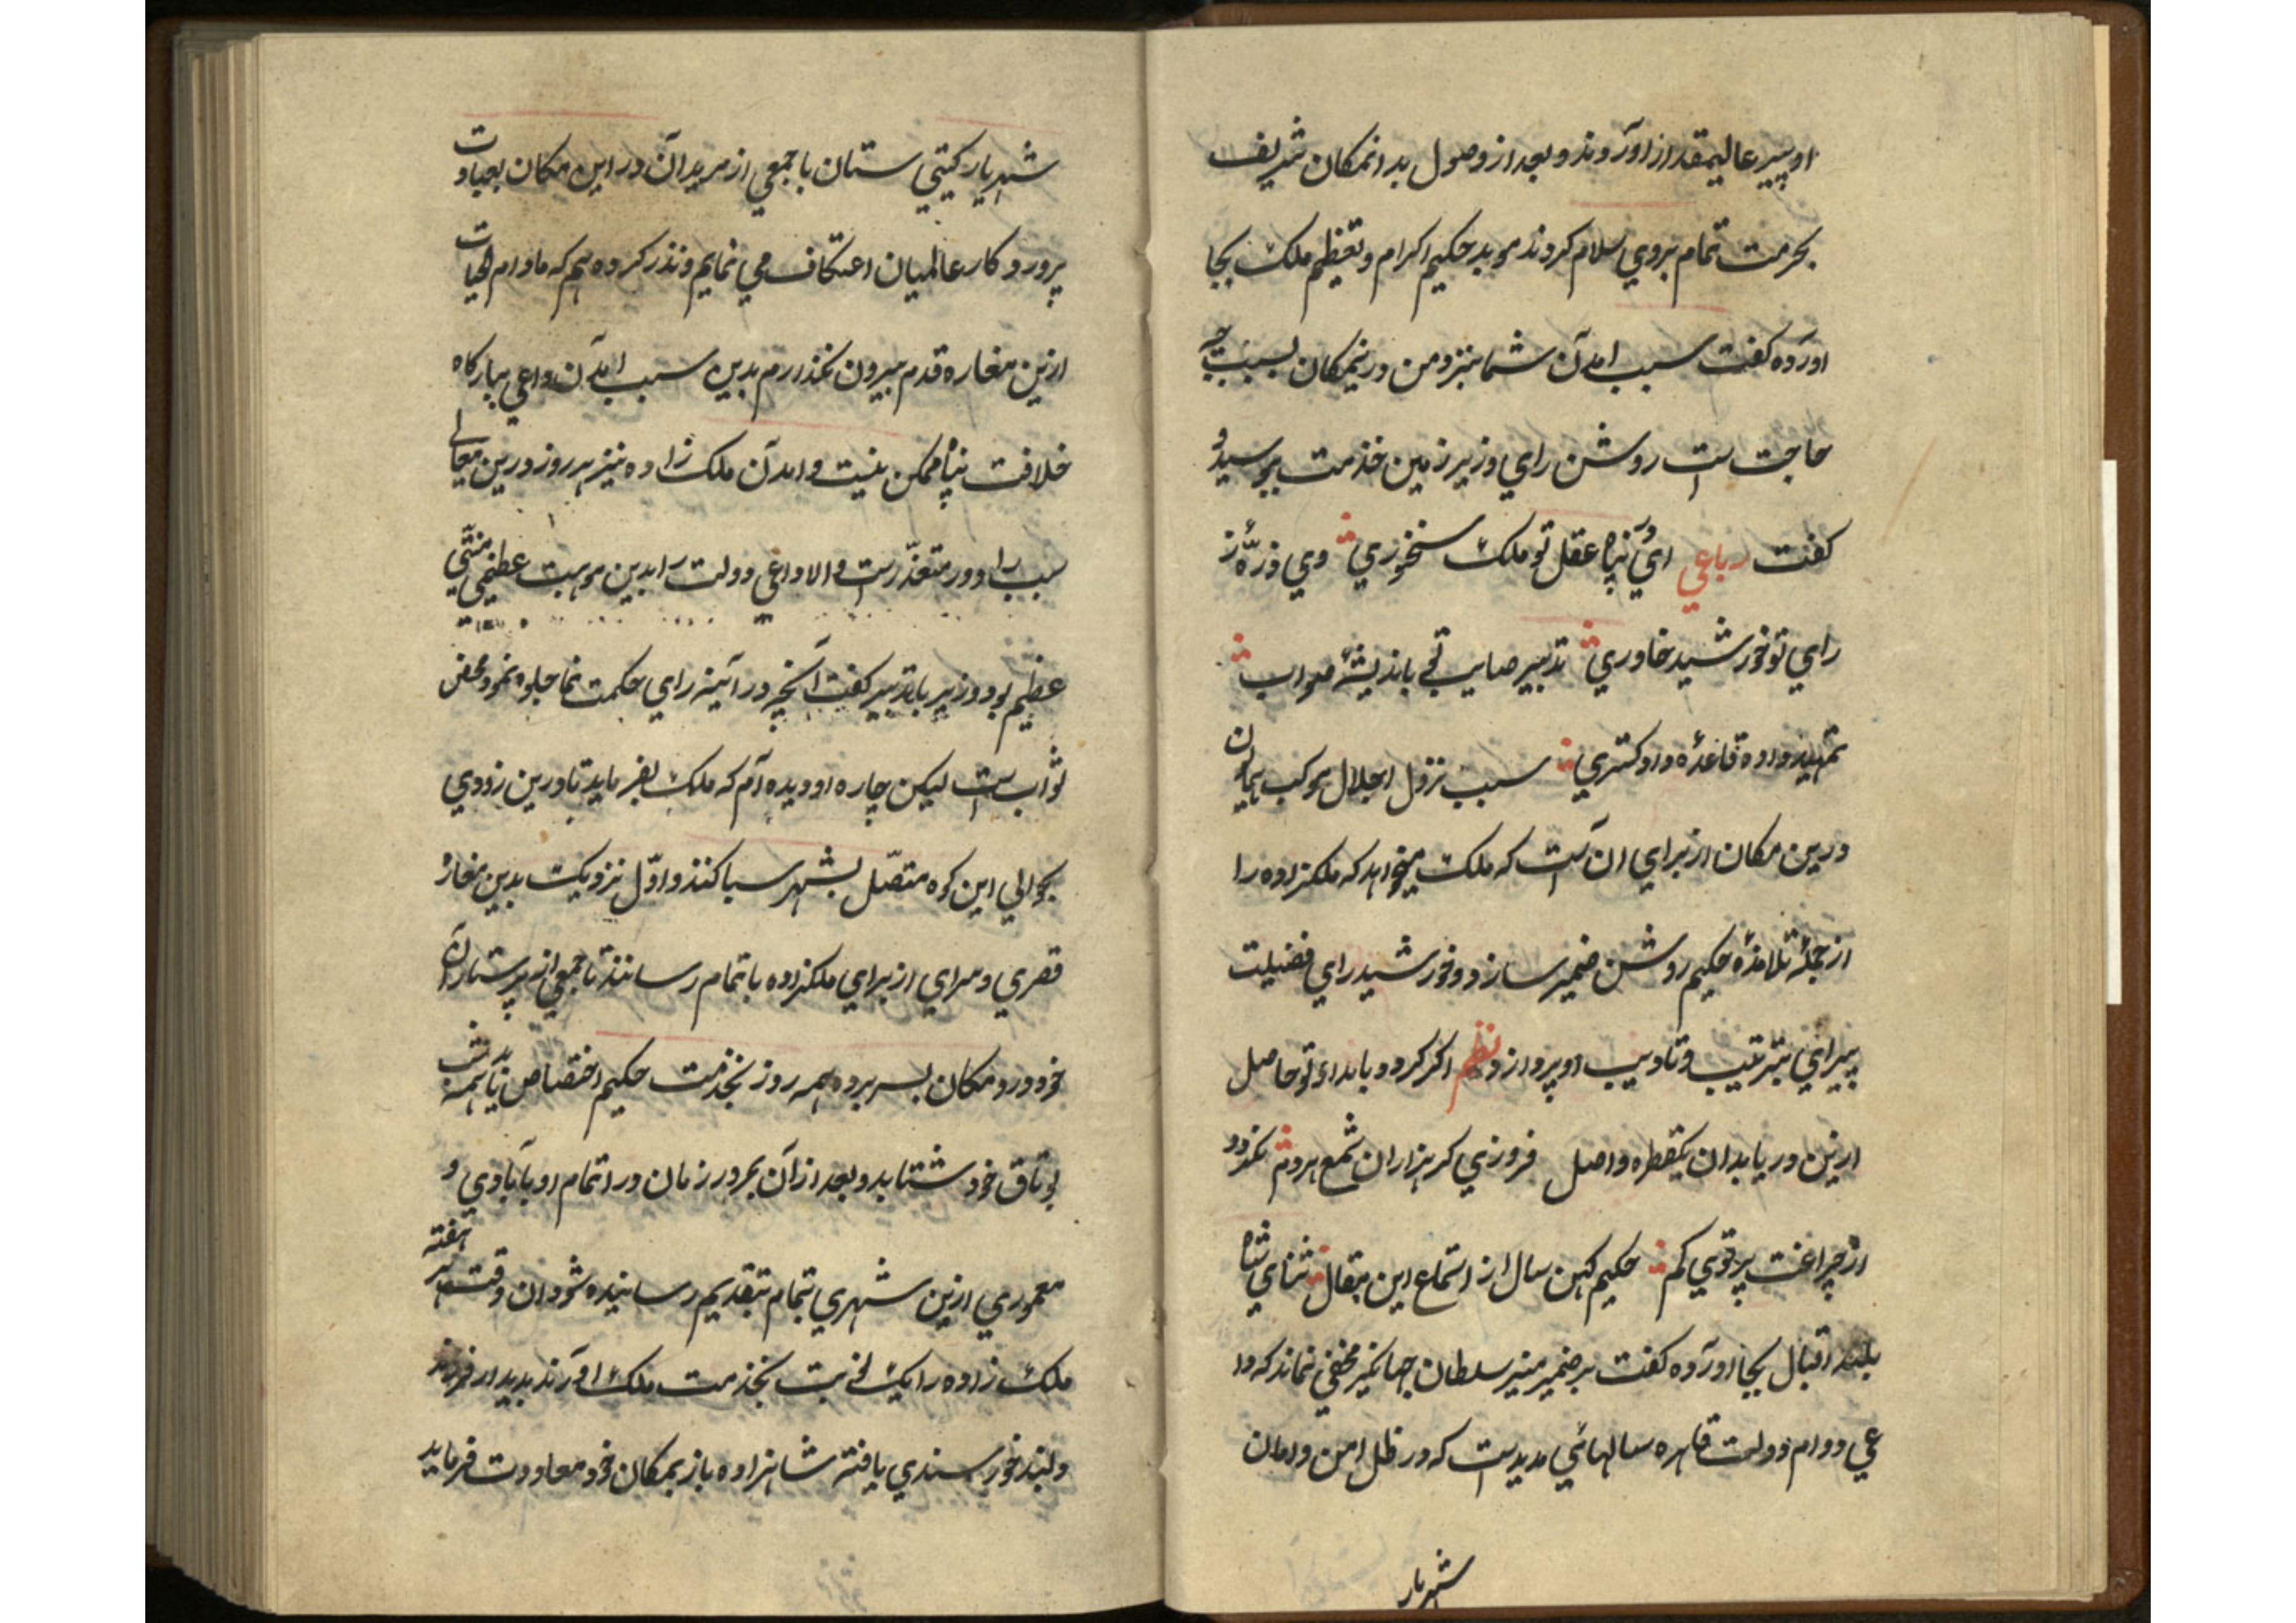 او پیر عالیمقدار آوردند و بعد از وصول بدانمکان شریف
بحرمت تمام بروی سلام کردند موبد حکیم اکرام و تعظیم ملک بجا
آورده کفت سبب آمدن شما بنزد من درینمکان بسبب چه
حاجت است روشن رای وزیر زمین خدمت بوسید و
کفت رباعی ای پناه عقل تو ملک سخنوری وی ذرّهٔ ز
رای تو خورشید خاوری تدبیر صایب تو باندیشهٔ صواب
تمهید داده قاعدهٔ داد کستری سبب نزول اجلال موکب همایون
درین مکان از برای آن است که ملک میخواهد که ملکزاده را
از جملهٔ تلامذهٔ حکیم روشن ضمیر سازد و خورشید رای فضیلت
پیرای بترتیب و تادیب او پردازد نظم اکر کردد بامداد تو حاصل
ازین دریا بدان یکقطره واصل فروزنی کر هزاران شمع هردم نکردد
از چراغت پرتوی کم حکیم کهن سال از استماع این مقال ثنای شاه
بلند اقبال بجا آورده کفت بر ضمیر منیر سلطان جهانکیر مخفی نماند که دا
عی دوام دولت قاهره سالهائی مدیدست که در ظل امن و امان
شهریار
شهریار کیتی ستان با جمعی از مریدان در این مکان بعبادت
پروردکار عالمیان اعتکاف می نمایم و نذر کرده ام که مادام الحیات
ازین مغاره قدم بیرون نکذارم بدین سبب آمدن داعی ببارکاه
خلافت پناه ممکن نیست و آمدن ملک زاده نیز هر روز درین معالی
سبب راه دور متعذّرست والا داعی دولت را بدین موهبت عظیمی منتّی
عظیم بود وزیر باتدبیر کفت آنچه در آئینه رای حکمت نما جلوه نمود محض
ثواب است لیکن چاره او دیده آم که ملک بفرماید تا درین زودی
بحوالی این کوه متصّل بشهر سبا کنند و اوّل نزدیک بدین مغاره
قصری و سرای از برای ملکزاده باتمام رسانند تا جمعی از پرستاران
خود درو مکان بسر برده همه روز بخدمت حکیم اختصاص یابد همه شب
بوتاق خود شتابد و بعد از آن بمرور زمان در اتمام او بآبادی و
معموری ازین شهری بتمام بتقدیم رسانیده شود آن وقت هر هفته
ملک زاده را یک نوبت بخدمت ملک آورند بدیدار فرزند
دلبند خورسندی یافته شاهزاده باز بمکان خود معاودت فرماید